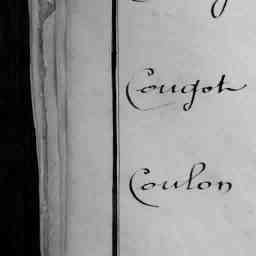 Cougot
Coulon